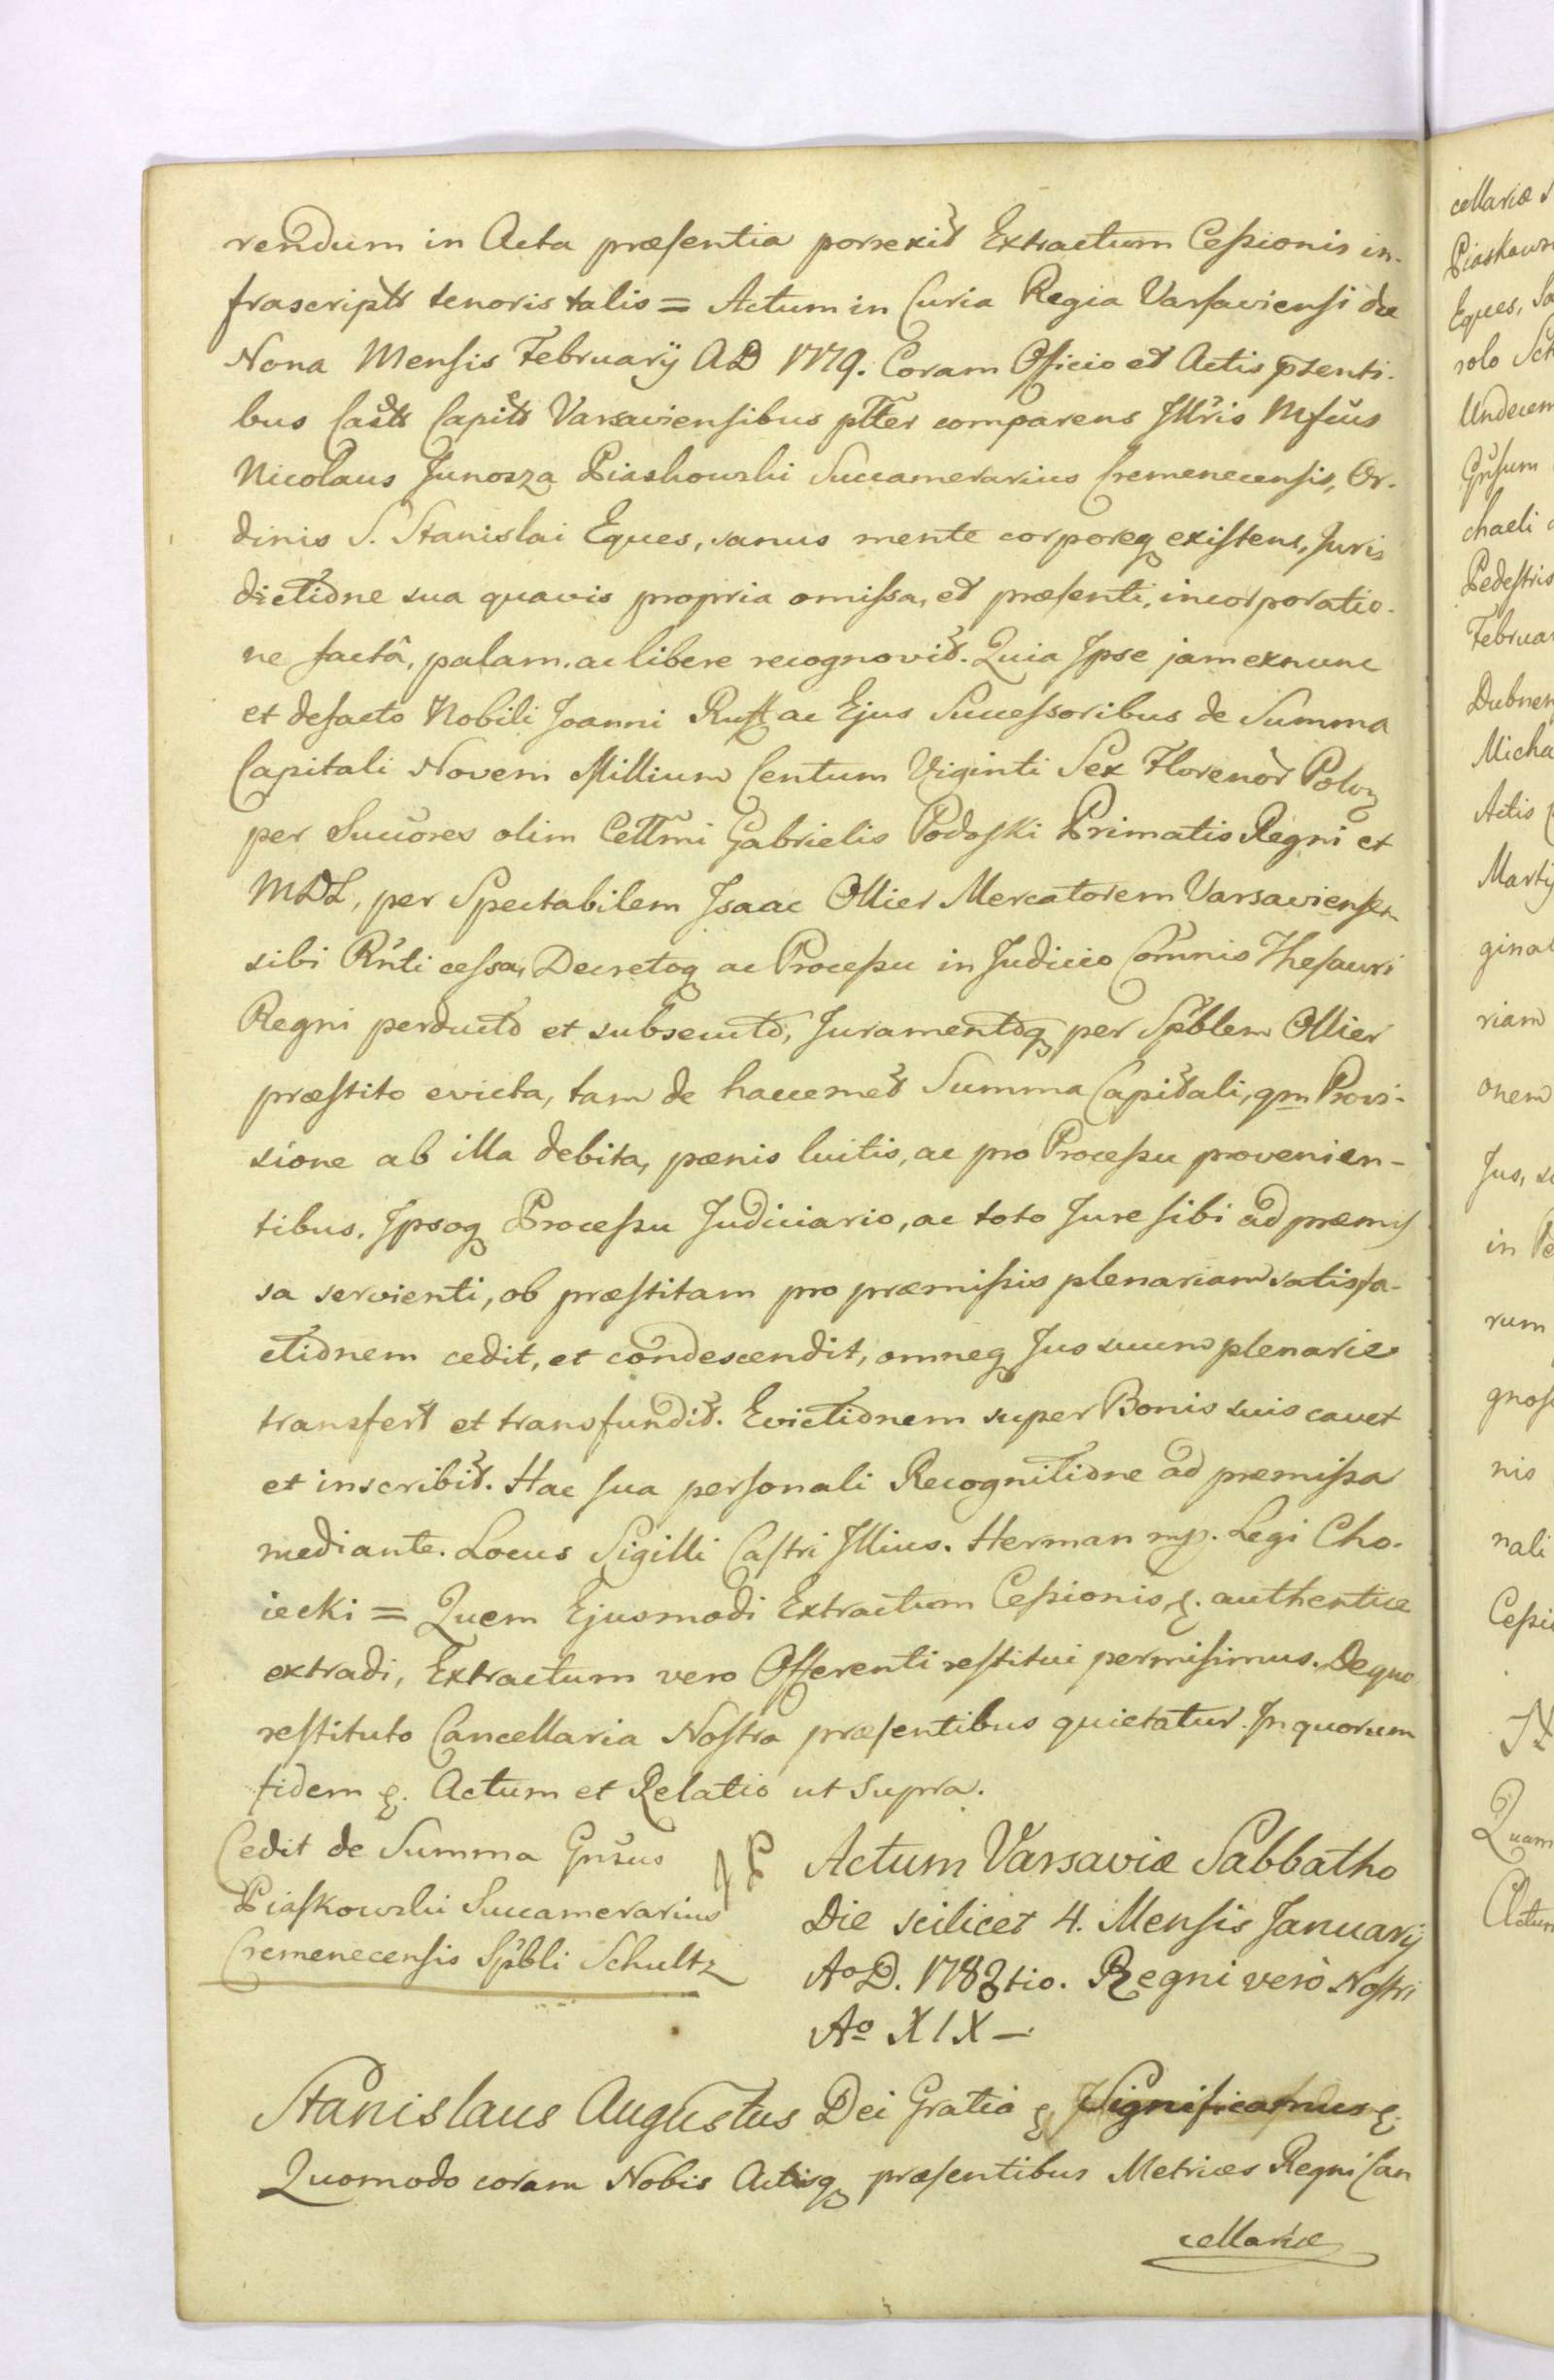 rendum in Acta præsentia porrexit Extractum Cessionis in-
frascripti tenoris talis = Actum in Curia Regia Varsaviensi die
Nona Mensis February AD 1779. Coram Officio et Actis pñtenti-
bus Casts Capits Varsaviensibus pltter comparens Jllris Mfcus
Nicolaus Junosza Piaskowski Succamerarius Cremenecensis, Or-
dinis S. Stanislai Eques, sanus mente corporeq existens, Juris
dictione sua quavis propria omissa, et præsenti, incorporatio-
ne factâ, palam, ac libere recognovit. Quia Jpse jam exnunc
et defacto Nobili Joanni Rust ac Ejus Successoribus de Summa
Capitali Novem Millium Centum Viginti Sex Florenor Polon
per Succores olim Cellmi Gabrielis Podoski Primatis Regni et
MDL, per Spectabilem Jsaac Ollier Mercatorem Varsaviensem
sibi Rnti cessa, Decretoq ac Processu in Judicio Comnis Thesauri
Regni perducto et subsecuto, Juramentoq per Spblem Ollier
præstito evicta, tam de haccemet Summa Capitali, qm Provi-
sione ab illa debita, pœnis luitis, ac pro Processu provenien-
tibus. Jpsoq Processu Judiciario, ac toto Jure sibi ad præmis
sa servienti, ob præstitam pro præmissis plenariam satisfa-
ctionem cedit, et condescendit, omneq Jus suum plenarie
transfert et transfundit. Evictionem super Bonis suis cavet
et inscribit. Hac sua personali Recognitione ad præmissa
mediante. Locus Sigilli Castri Jllius. Herman mp. Legi Cho-
iecki = Quem Ejusmodi Extractum Cessionis, &. authentice
extradi, Extractum vero Offerenti restitui permisimus. De quo
restituto Cancellaria Nostra præsentibus quietatur. Jn quorum
fidem &. Actum et Relatio ut supra.
Cedit de Summa Gnsus
Piaskowski Succamerarius
Cremenecensis Spbli Schultz
Actum Varsaviæ Sabbatho
Die scilicet 4. Mensis January
Ao D. 1783tio. Regni verò Nostri
Ao XIX —
Stanislaus Augustus Dei Gratia &. Significamus &.
Quomodo coram Nobis Actisq præsentibus Metrices Regni Can
cellariæ
cellariæ
Eques,
Undecem
chaeli
Pedestris
Februar
Micha
Actis
riam
onem
Jus,
in
rum
nis
nali
Quam
Actum